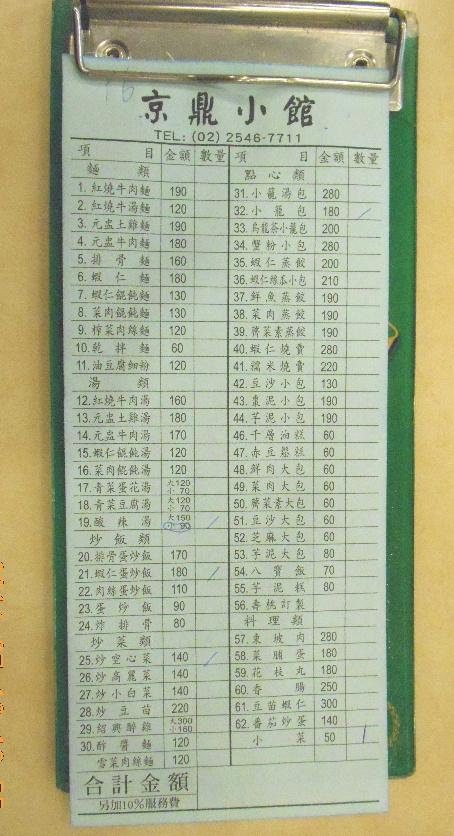 京鼎小館
TEL: (02) 2546-7711
項 目 金額 數量
麵 類
1. 紅燒牛肉麵 190
2. 紅燒牛湯麵 120
3. 元盅土雞麵 190
4. 元盅牛肉麵 180
5. 排骨麵 160
6. 蝦仁麵 180
7. 蝦仁餛飩麵 130
8. 菜肉餛飩麵 130
9. 榨菜肉絲麵 120
10. 乾拌麵 60
11. 油豆腐細粉 120
湯 類
12. 紅燒牛肉湯 160
13. 元盅土雞湯 180
14. 元盅牛肉湯 170
15. 蝦仁餛飩湯 120
16. 菜肉餛飩湯 120
17. 青菜蛋花湯 大120 小70
18. 青菜豆腐湯 大120 小70
19. 酸辣湯 大150 小90
炒飯類
20. 排骨蛋炒飯 170
21. 蝦仁蛋炒飯 180
22. 肉絲蛋炒飯 110
23. 蛋炒飯 90
24. 炸排骨 80
炒菜類
25. 炒空心菜 140
26. 炒高麗菜 140
27. 炒小白菜 140
28. 炒豆苗 220
29. 紹興醉雞 大300 小160
30. 酢醬麵 120
雪菜肉絲麵 120
合計金額
另加10%服務費
項 目 金額 數量
點心類
31. 小籠湯包 280
32. 小籠包 180
33. 烏龍茶小籠包 200
34. 蟹粉小包 280
35. 蝦仁蒸餃 200
36. 蝦仁絲瓜小包 210
37. 鮮魚蒸餃 190
38. 菜肉蒸餃 190
39. 薺菜素蒸餃 190
40. 蝦仁燒賣 280
41. 糯米燒賣 220
42. 豆沙小包 130
43. 棗泥小包 190
44. 芋泥小包 190
46. 千層油糕 60
47. 赤豆鬆糕 60
48. 鮮肉大包 60
49. 菜肉大包 60
50. 薺菜素大包 60
51. 豆沙大包 60
52. 芝麻大包 60
53. 芋泥大包 80
54. 八寶飯 70
55. 芋泥糕 80
56. 壽桃訂製
料理類
57. 東坡肉 280
58. 菜脯蛋 180
59. 花枝丸 180
60. 香腸 250
61. 豆苗蝦仁 300
62. 番茄炒蛋 140
小菜 50 1